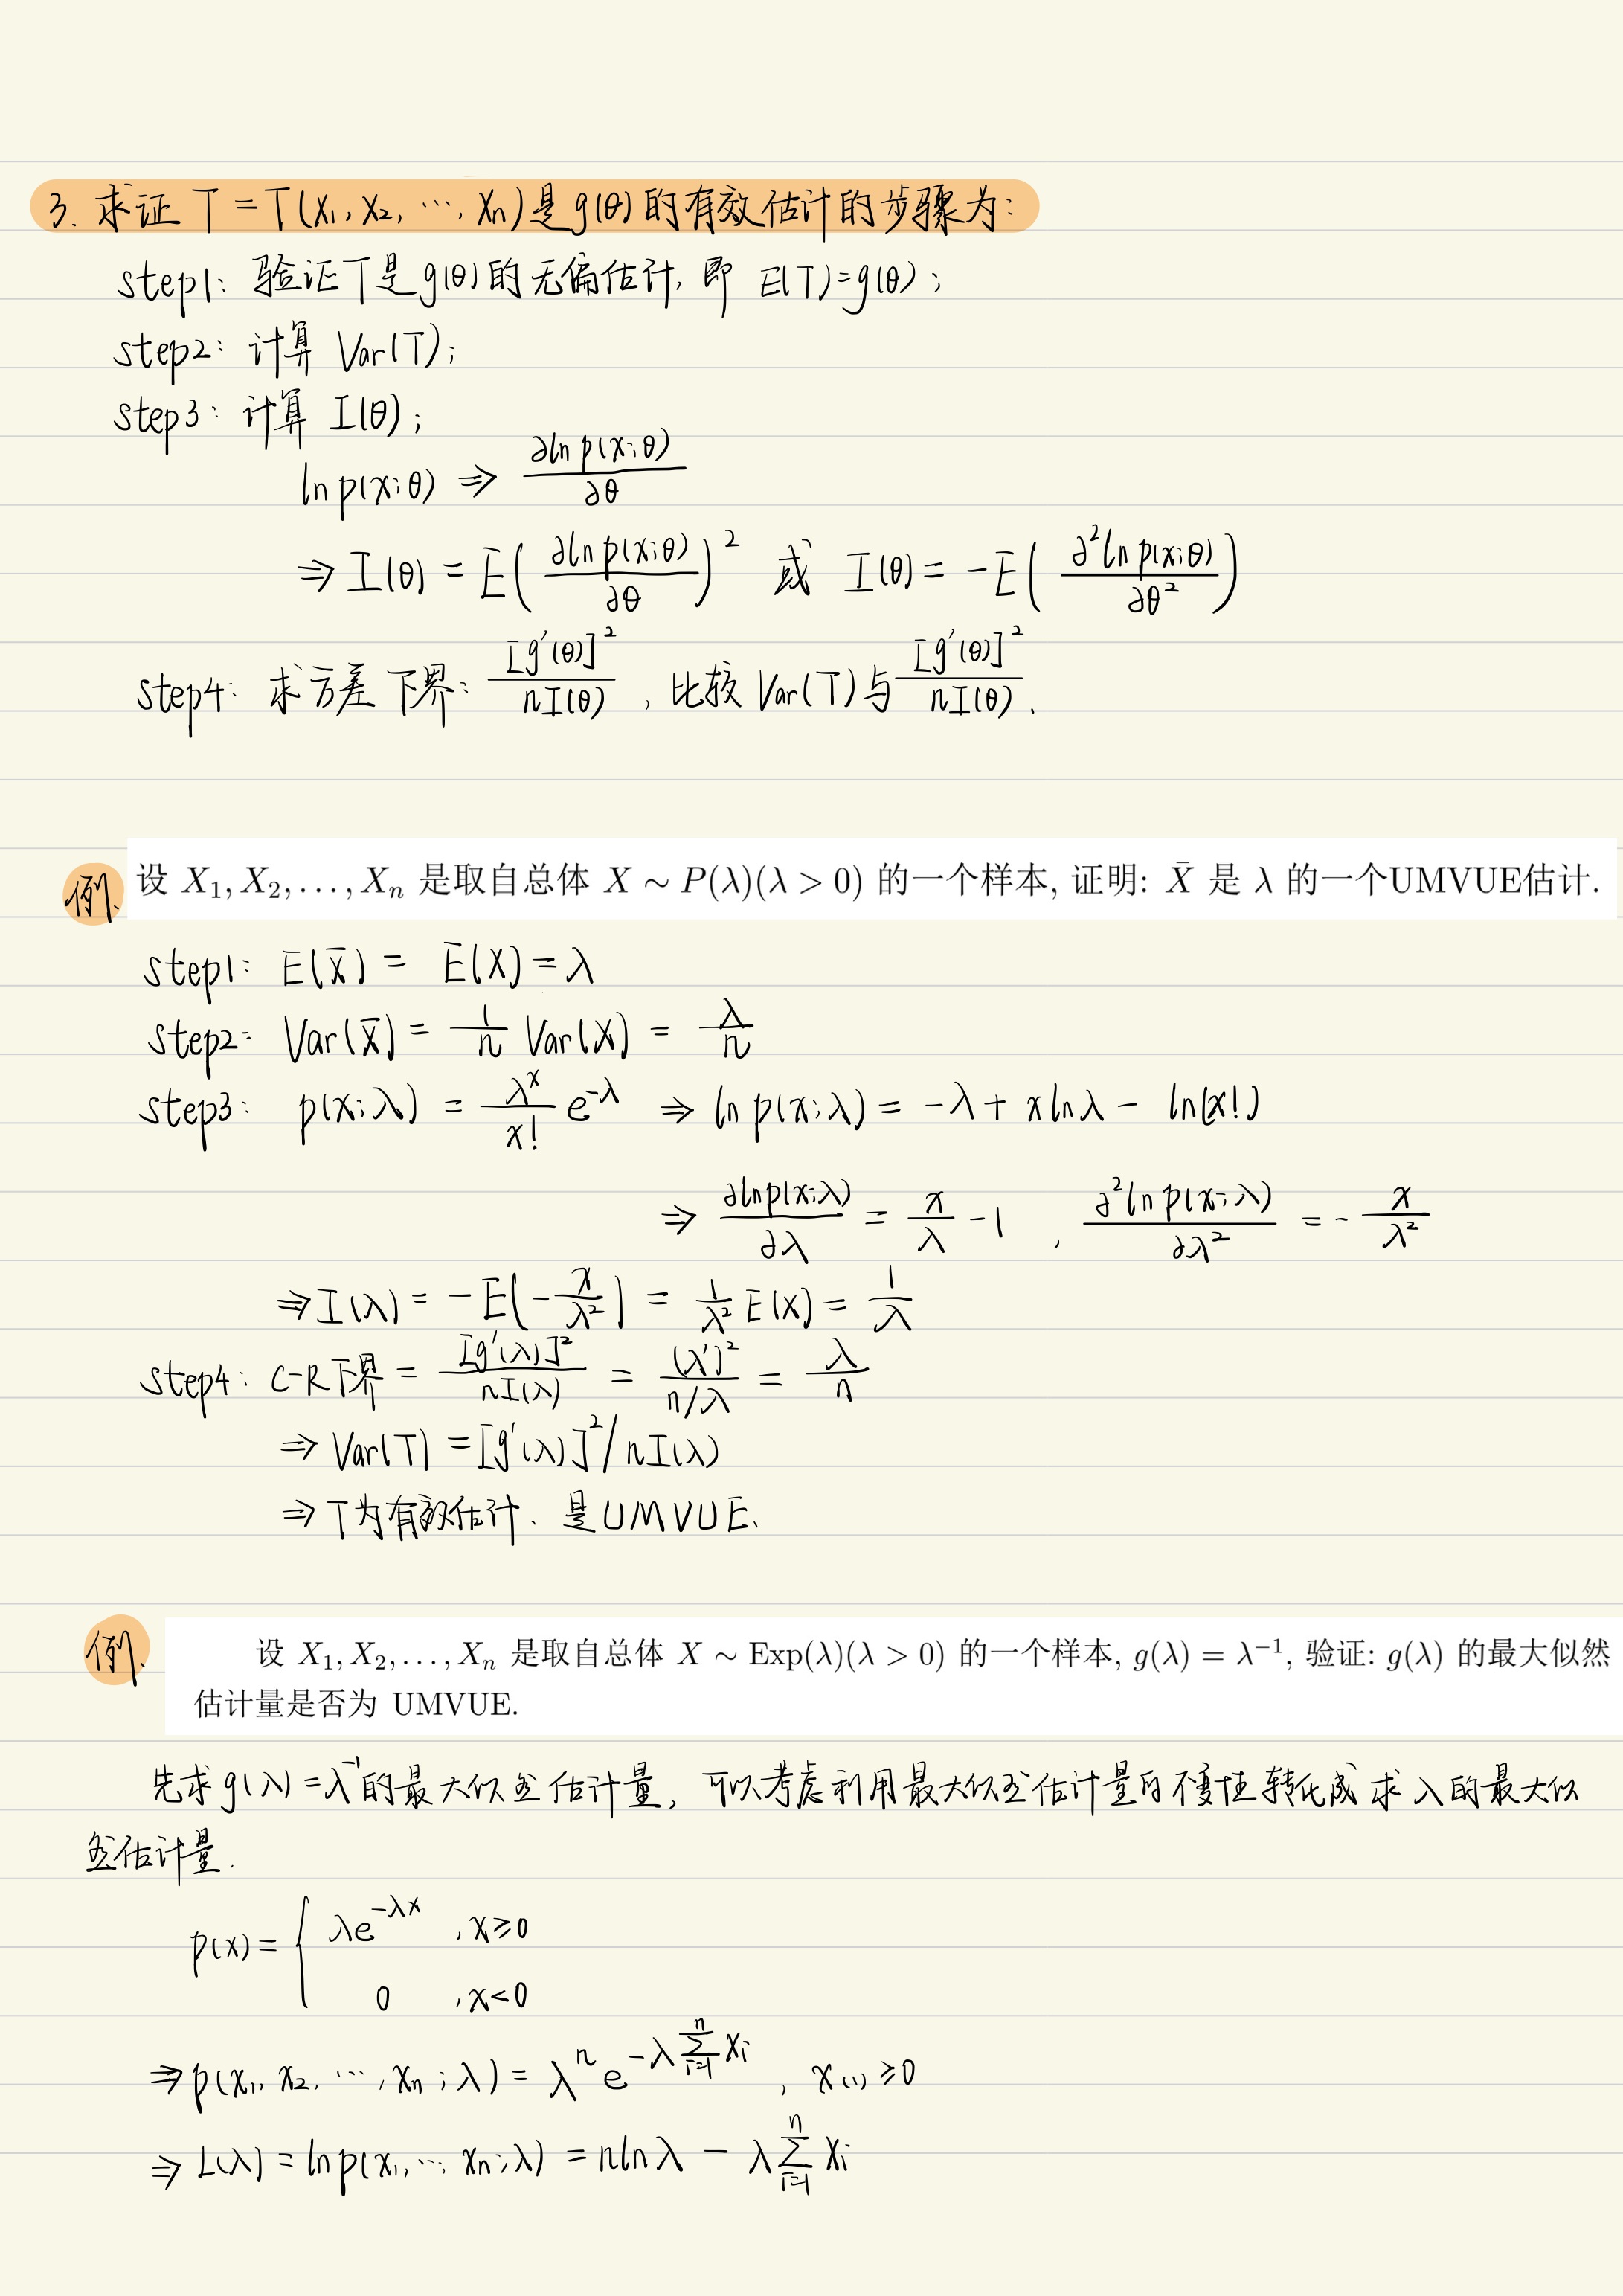 3. 求证 T = T(x₁, x₂, ⋯, xₙ)是g(θ)的有效估计的步骤为:
step1: 验证T是g(θ)的无偏估计, 即 E(T)=g(θ);
step2: 计算 Var(T);
step3: 计算 I(θ);
ln p(x;θ) ⇒ ∂ln p(x;θ)/∂θ
⇒ I(θ) = E(∂ln p(x;θ)/∂θ)² 或 I(θ) = -E(∂²ln p(x;θ)/∂θ²)
step4: 求方差下界: [g′(θ)]²/nI(θ) , 比较 Var(T)与 [g′(θ)]²/nI(θ).
例. 设 X₁, X₂, . . . , Xₙ 是取自总体 X ∼ P(λ)(λ > 0) 的一个样本, 证明: X̄ 是 λ 的一个UMVUE估计.
step1: E(x̄) = E(X) = λ
step2: Var(x̄) = 1/n Var(X) = λ/n
step3: p(x;λ) = λˣ/x! e^{-λ} ⇒ ln p(x;λ) = -λ + xlnλ - ln(x!)
⇒ ∂lnp(x;λ)/∂λ = x/λ - 1 , ∂²ln p(x;λ)/∂λ² = - x/λ²
⇒ I(λ) = -E(-x/λ²) = 1/λ² E(X) = 1/λ
step4: C-R下界 = [g′(λ)]²/nI(λ) = (λ′)²/n/λ = λ/n
⇒ Var(T) = [g′(λ)]²/nI(λ)
⇒ T为有效估计、是UMVUE.
例. 设 X₁, X₂, . . . , Xₙ 是取自总体 X ∼ Exp(λ)(λ > 0) 的一个样本, g(λ) = λ⁻¹, 验证: g(λ) 的最大似然
估计量是否为 UMVUE.
先求g(λ)=λ⁻¹的最大似然估计量, 可以考虑利用最大似然估计量的不变性转化成求λ的最大似
然估计量.
p(x) = { λe^{-λx} , x≥0
0 , x<0
⇒ p(x₁, x₂, ⋯, xₙ; λ) = λⁿ e^{-λ∑_{i=1}^{n} xᵢ} , x₍₁₎ ≥0
⇒ L(λ) = ln p(x₁, ⋯, xₙ;λ) = nlnλ - λ∑_{i=1}^{n} xᵢ